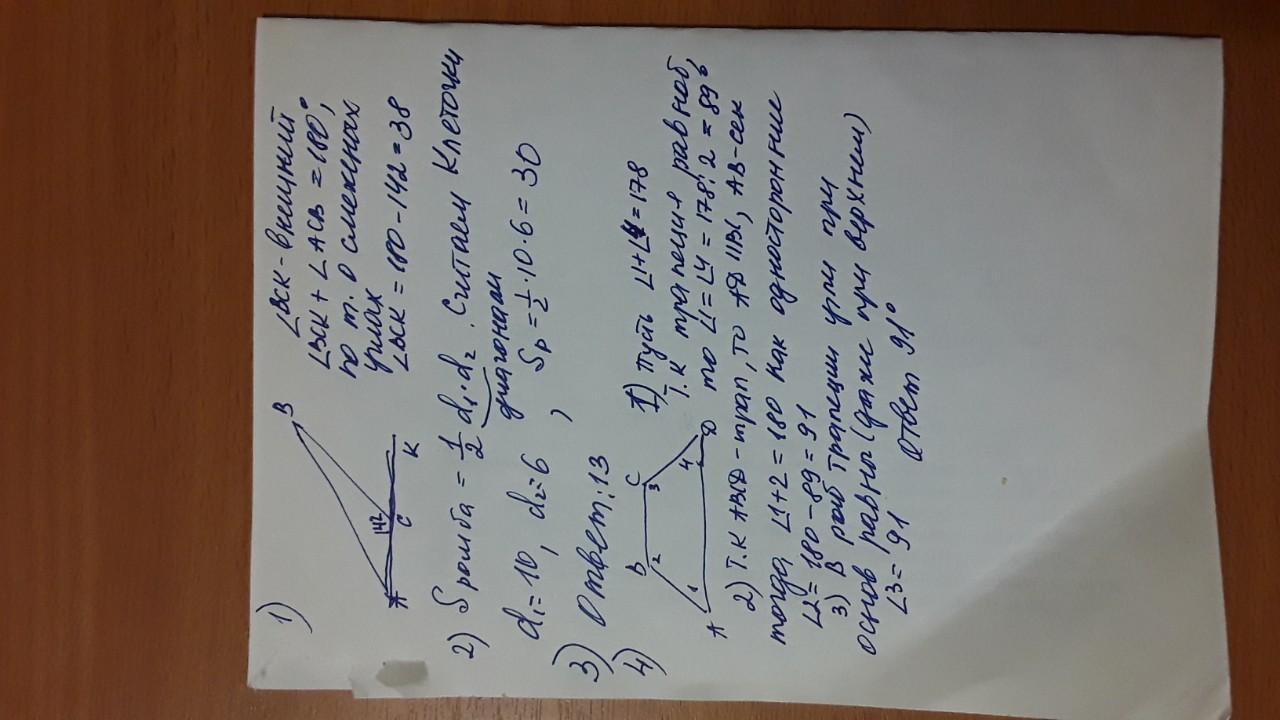 1)
B
142
A
C
K
∠BCK - внешний
∠BCK + ∠ACB = 180°,
по т. о смежных
углах
∠BCK = 180 - 142 = 38
2) Sромба = 1/2 d₁·d₂. Считаем клеточки
диагонали
d₁ = 10, d₂ = 6 , Sр = 1/2·10·6 = 30
3) Ответ: 13
4)
B
C
2
3
1
4
A
D
1) Пусть ∠1+∠4 = 178
Т.К трапеция равноб,
то ∠1 = ∠4 = 178:2 = 89°
2) Т.К ABCD - трап, то AD || BC, AB - сек
тогда ∠1+2 = 180 как односторонние
∠2 = 180 - 89 = 91
3) В равб трапеции углы при
основ равны (даже при верхнем)
∠3 = 91
Ответ 91°